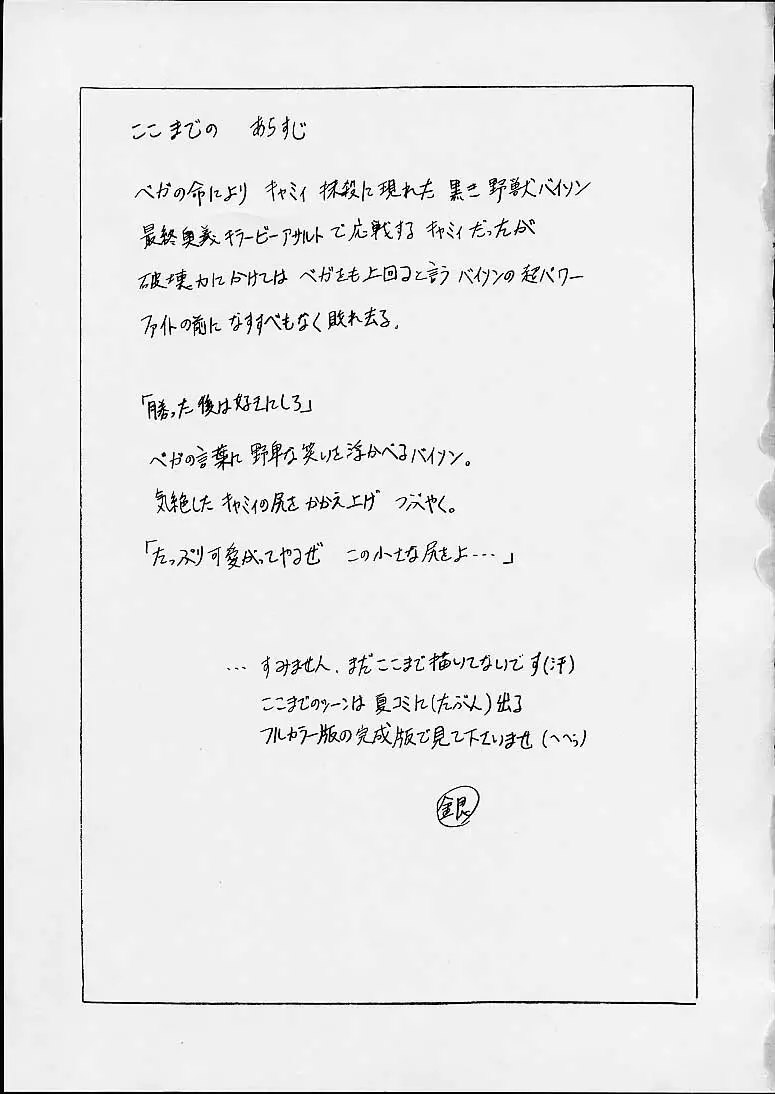 ここまでの あらすじ
ベガの命により キャミィ 抹殺に現れた 黒き 野獣バイソン
最終奥義キラービーアサルトで応戦する キャミィだったが
破壊力にかけては ベガをも上回ると言う バイソンの超パワー
ファイトの前に なすすべもなく 敗れ去る.
「勝った後は好きにしろ」
ベガの言葉に 野卑な笑いを浮かべるバイソン。
気絶した キャミィの尻を かかえ上げ つぶやく。
「たっぷり可愛がってやるぜ この小さな尻をよ…」
… すみません、まだここまで描いてないです(汗)
ここまでのシーンは 夏コミに(たぶん)出る
フルカラー版の完成版で見て下さいませ (へへっ)
銀